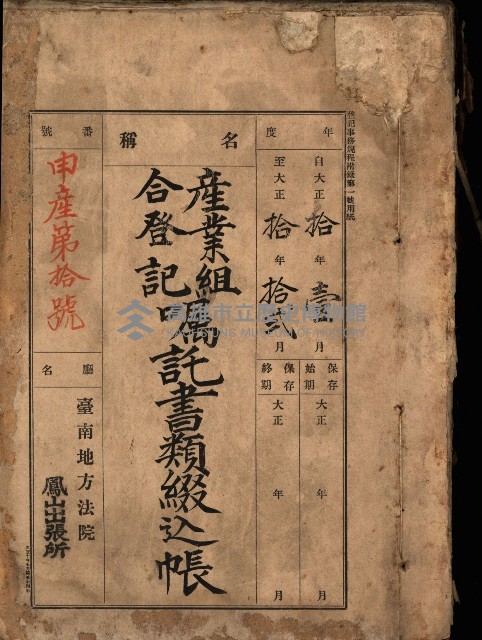 登記事務規程附錄第一號用紙
年度
自大正拾年壹月
至大正拾年拾弍月
保存始期
大正年月
保存終期
大正年月
名稱
産業組
合登記
囑託書類綴込帳
番號
申產第拾號
廳名
臺南地方法院
鳳山出張所
高雄市立歷史博物館